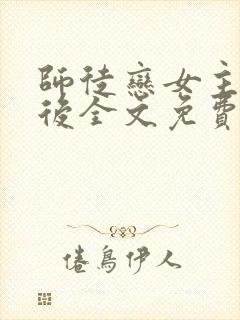 師徒戀女主
後全文免費
倦鳥伊人